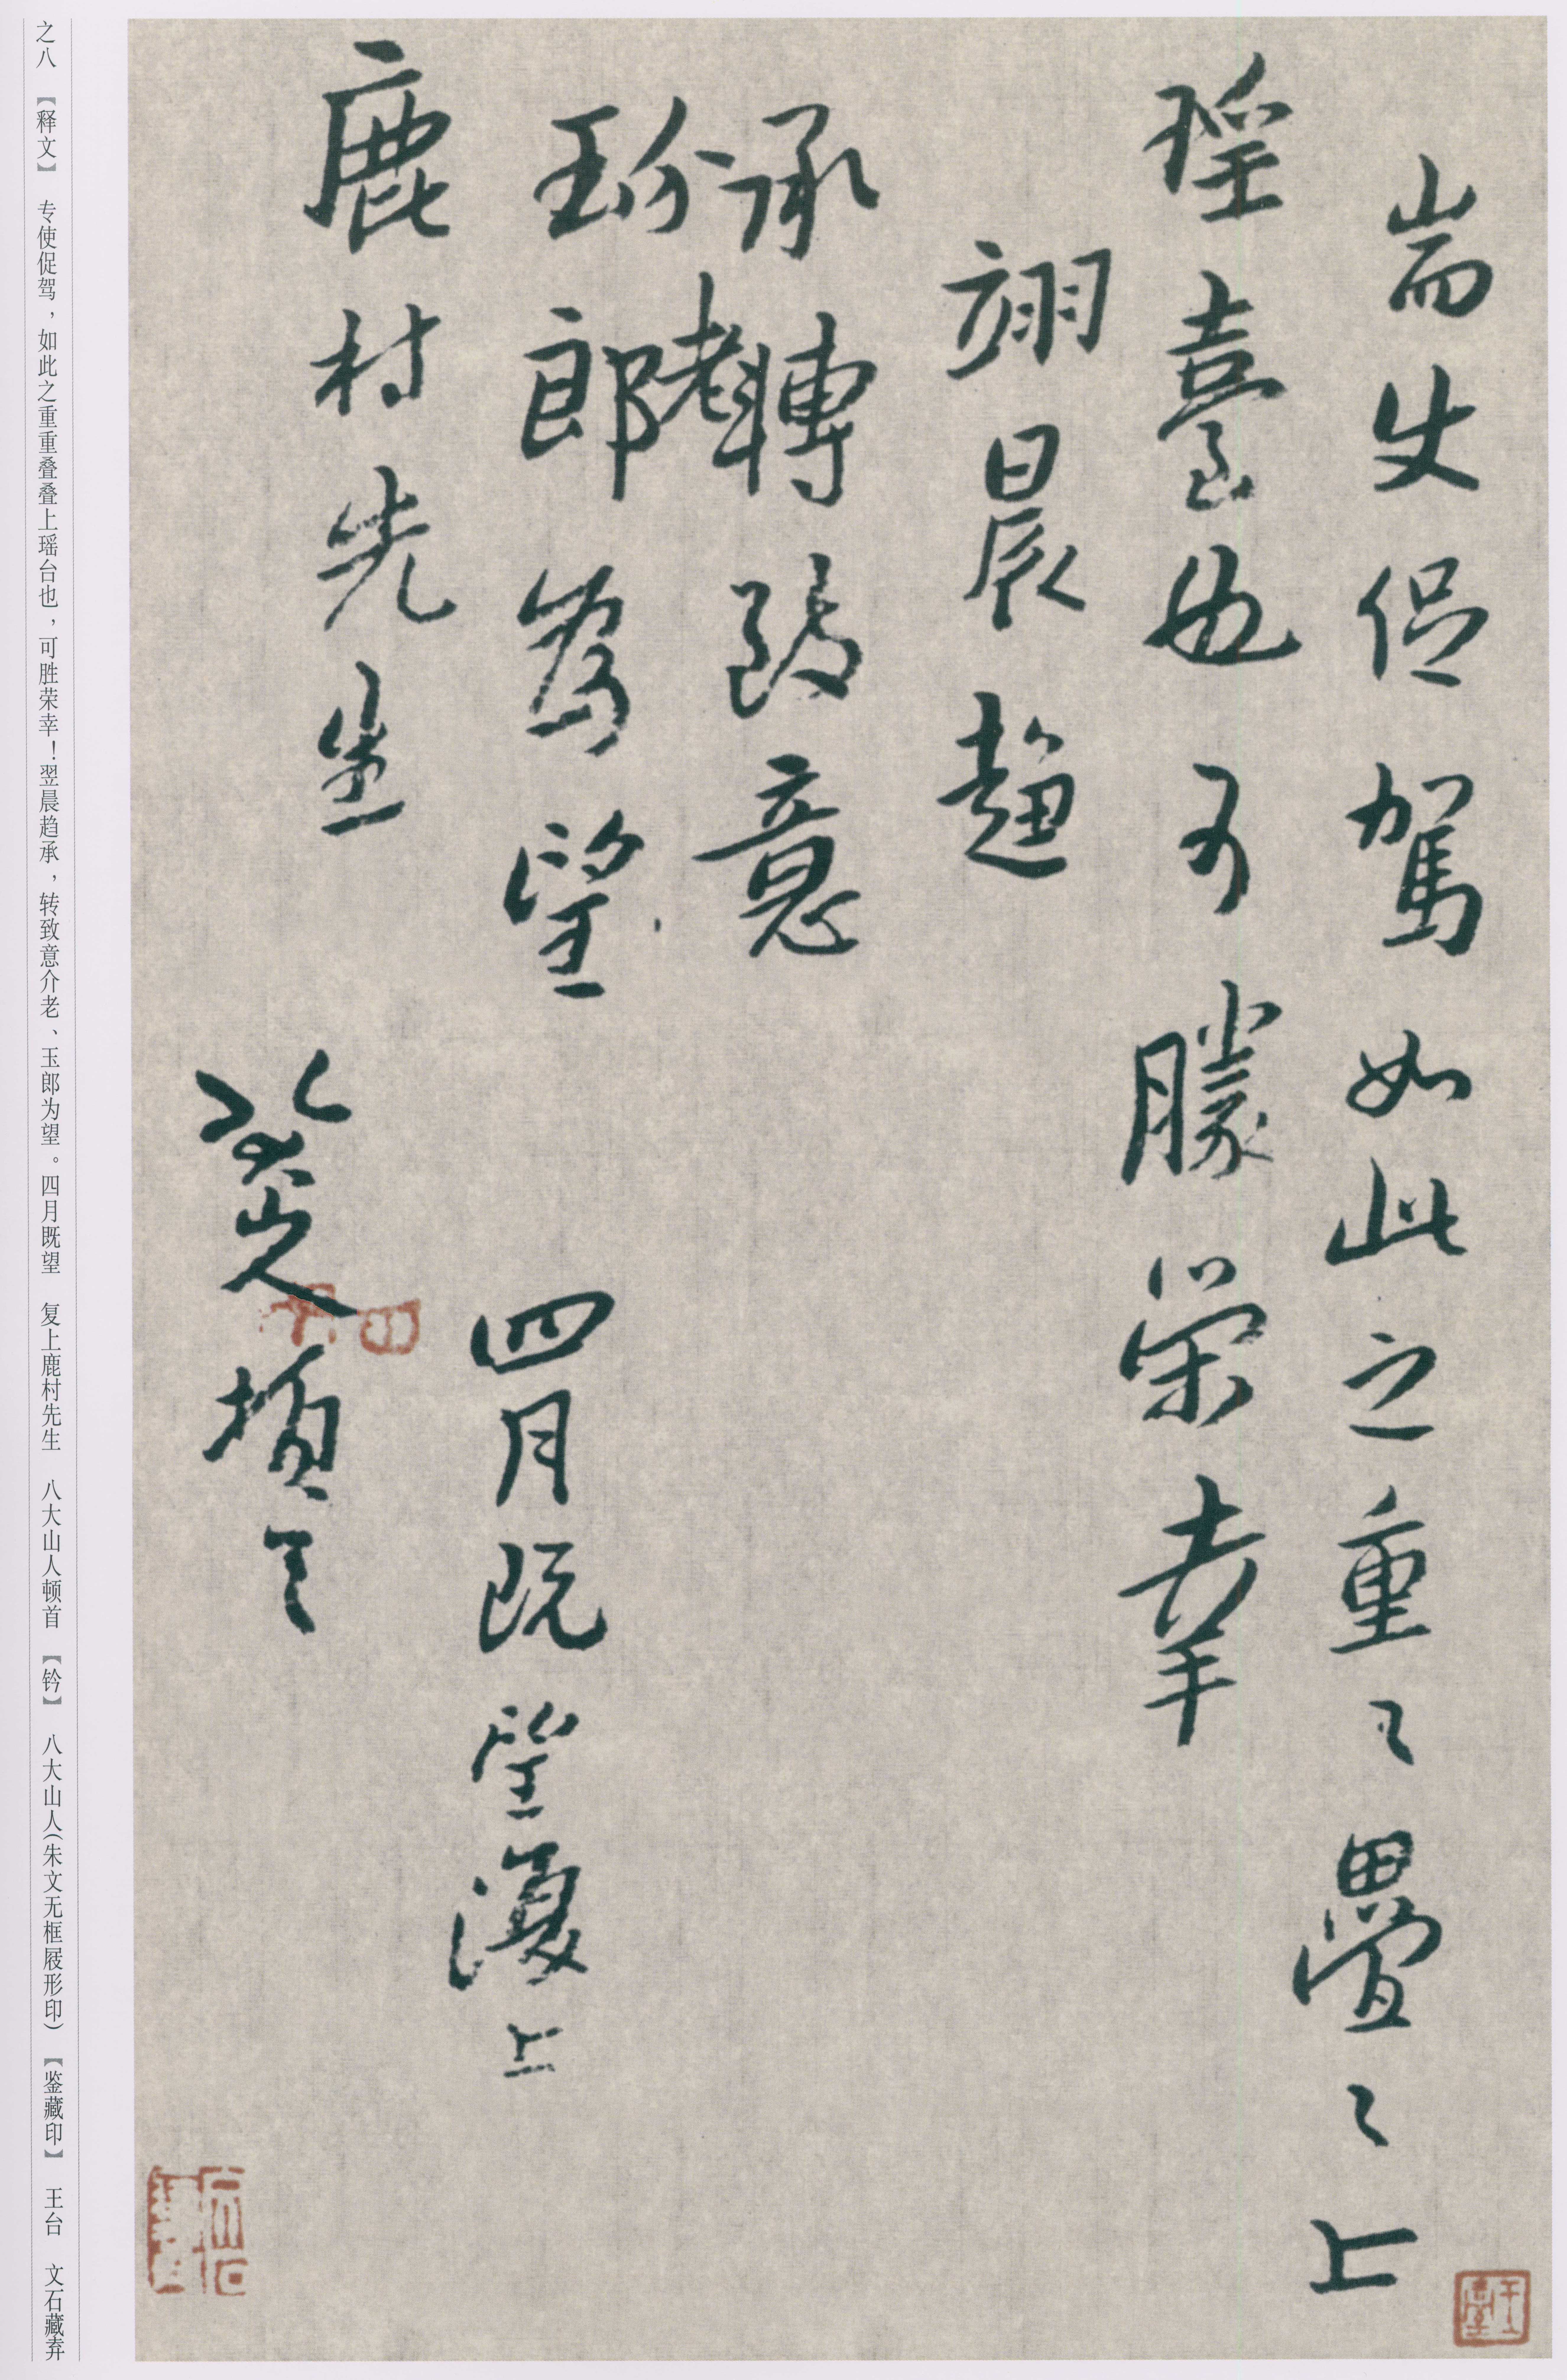 耑使促駕如此之重〻疊〻上
瑤臺也可勝榮幸
翊晨趨
承轉致意
介老
玉郎為望
四月既望復上
鹿村先生
八大山人頓首
之八 【释文】 专使促驾，如此之重重叠叠上瑶台也，可胜荣幸！翌晨趋承，转致意介老、玉郎为望。四月既望 复上鹿村先生 八大山人顿首 【钤】 八大山人（朱文无框屐形印） 【鉴藏印】 王台 文石藏弆